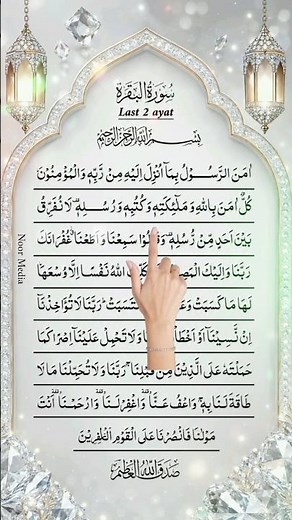 سُورَةُ الْبَقَرَة
Last 2 ayat
بِسْمِ اللهِ الرَّحْمٰنِ الرَّحِيْمِ
اٰمَنَ الرَّسُوْلُ بِمَاۤ اُنْزِلَ اِلَيْهِ مِنْ رَّبِّهٖ وَالْمُؤْمِنُوْنَ
كُلٌّ اٰمَنَ بِاللهِ وَمَلٰٓئِكَتِهٖ وَكُتُبِهٖ وَرُسُلِهٖ لَا نُفَرِّقُ
بَيْنَ اَحَدٍ مِّنْ رُّسُلِهٖ سَمِعْنَا وَاَطَعْنَا غُفْرَانَكَ
رَبَّنَا وَاِلَيْكَ اللهُ نَفْسًا اِلَّا وُسْعَهَا
لَهَا مَا كَسَبَتْ رَبَّنَا لَا تُؤَاخِذْنَاۤ
اِنْ نَّسِيْنَاۤ وَلَا تَحْمِلْ عَلَيْنَاۤ اِصْرًا كَمَا
حَمَلْتَهٗ عَلَى الَّذِيْنَ مِنْ قَبْلِنَا رَبَّنَا وَلَا تُحَمِّلْنَا مَا لَا
طَاقَةَ لَنَا بِهٖ وَاعْفُ عَنَّا وَاغْفِرْ لَنَا وَارْحَمْنَا اَنْتَ
مَوْلٰىنَا فَانْصُرْنَا عَلَى الْقَوْمِ الْكٰفِرِيْنَ
صَدَقَ اللهُ الْعَظِيْمُ
Noor Media